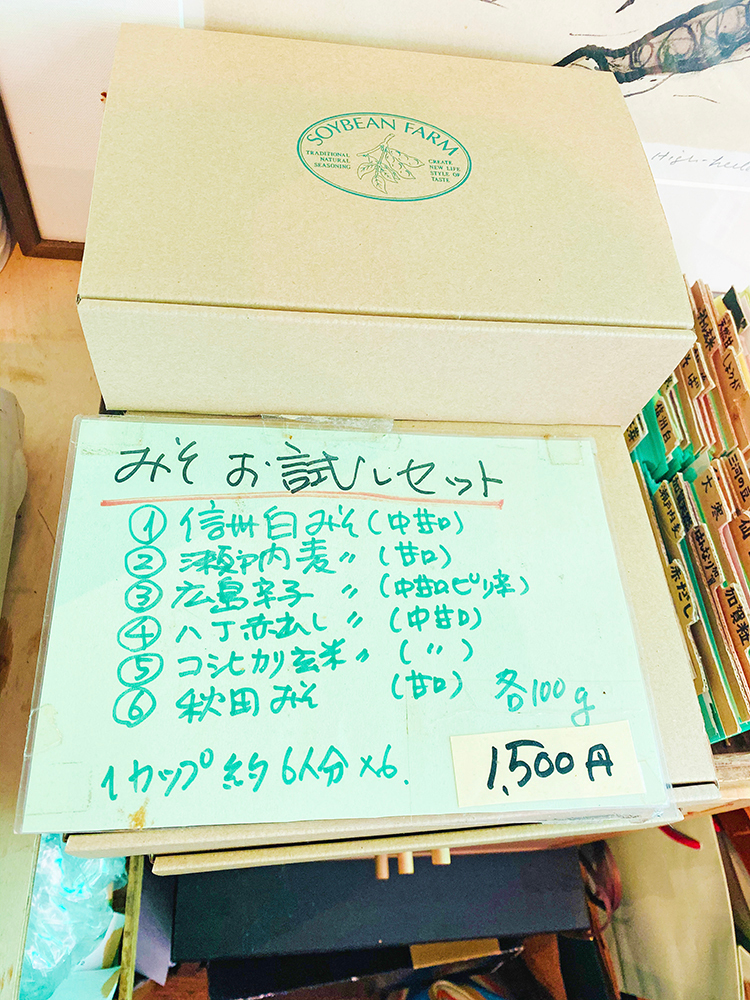 SOYBEAN FARM
TRADITIONAL
NATURAL
SEASONING
CREATE
NEW LIFE
STYLE OF
TASTE
みそ お試しセット
① 信州白みそ(中甘口)
② 瀬戸内麦 〃 (甘口)
③ 広島辛子 〃 (中甘口ピリ辛)
④ 八丁赤だし 〃 (中甘口)
⑤ コシヒカリ玄米 〃 (〃)
⑥ 秋田みそ (甘口) 各100g
1カップ約6人分×6.
1,500円
そば
信州白
大寒
赤だし
加賀糀